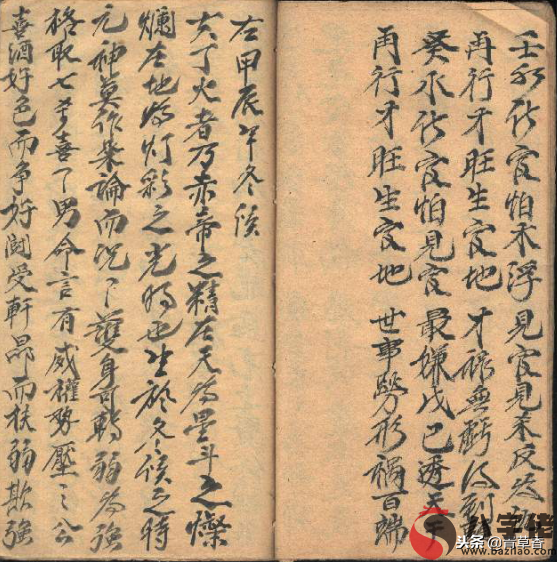 水作官怕木浮 見官見木反
再行才旺生官地 才祿無虧
癸水作官怕見官 最嫌戊己透天干
再行才旺生官地 世事勞形禍百端
甲辰年冬候
夫丁火者乃赤帝之精在天為星斗之燦
爛在地為灯彩之光明也生於冬候之時
元神莫作柴論而况護身可轉弱為強
格取七喜了男命言有威權势壓公
喜酒好色而争好鬪受軒昂而扶弱欺強
字佬
头条@青草奇
www.bazilao.com